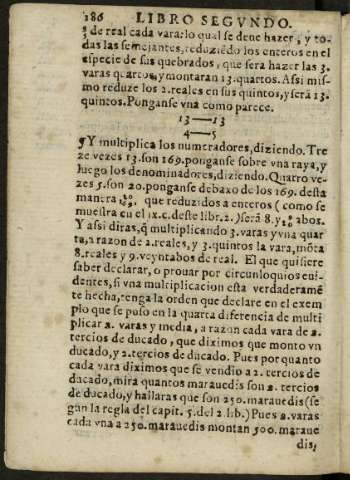 186 LIBRO SEGVNDO.
de real cada vara: lo qual se deue hazer, y to-
das las semejantes, reduziẽdo los enteros en el
especie de sus quebrados, que sera hazer las 3.
varas quartos, y montaran 13. quartos. Assi mis-
mo reduze los 2. reales en sus quintos, y serã 13.
quintos. Ponganse vna como parece.
13—13
4—5
¶Y multiplica los numeradores, diziendo. Tre
ze vezes 13. son 169. ponganse sobre vna raya, y
luego los denominadores, diziendo. Quatro ve-
zes 5. son 20. ponganse debaxo de los 169. desta
manera 169/20. que reduzidos a enteros (como se
muestra en el ix.c. deste libr. 2.) serã 8. y 9/20 abos.
Y assi diras, q̃ multiplicando 3. varas y vna quar
ta, a razon de 2. reales, y 3. quintos la vara, mõta
8. reales y 9. veyntabos de real. El que quisiere
saber declarar, o prouar por circunloquios eui-
dentes, si vna multiplicacion esta verdaderamẽ
te hecha, tenga la orden que declare en el exem
plo que se puso en la quarta diferencia de multi
plicar 2. varas y media, a razon cada vara de 2.
tercios de ducado, que diximos que monto vn
ducado, y 2. tercios de ducado. Pues por quanto
cada vara diximos que se vendio a 2. tercios de
ducado, mira quantos marauedis son 2. tercios
de ducado, y hallaras que son 250. marauedis (se
gun la regla del capit. 5. del 2. lib.) Pues 2. varas
cada vna a 250. marauedis montan 500. maraue
dis,